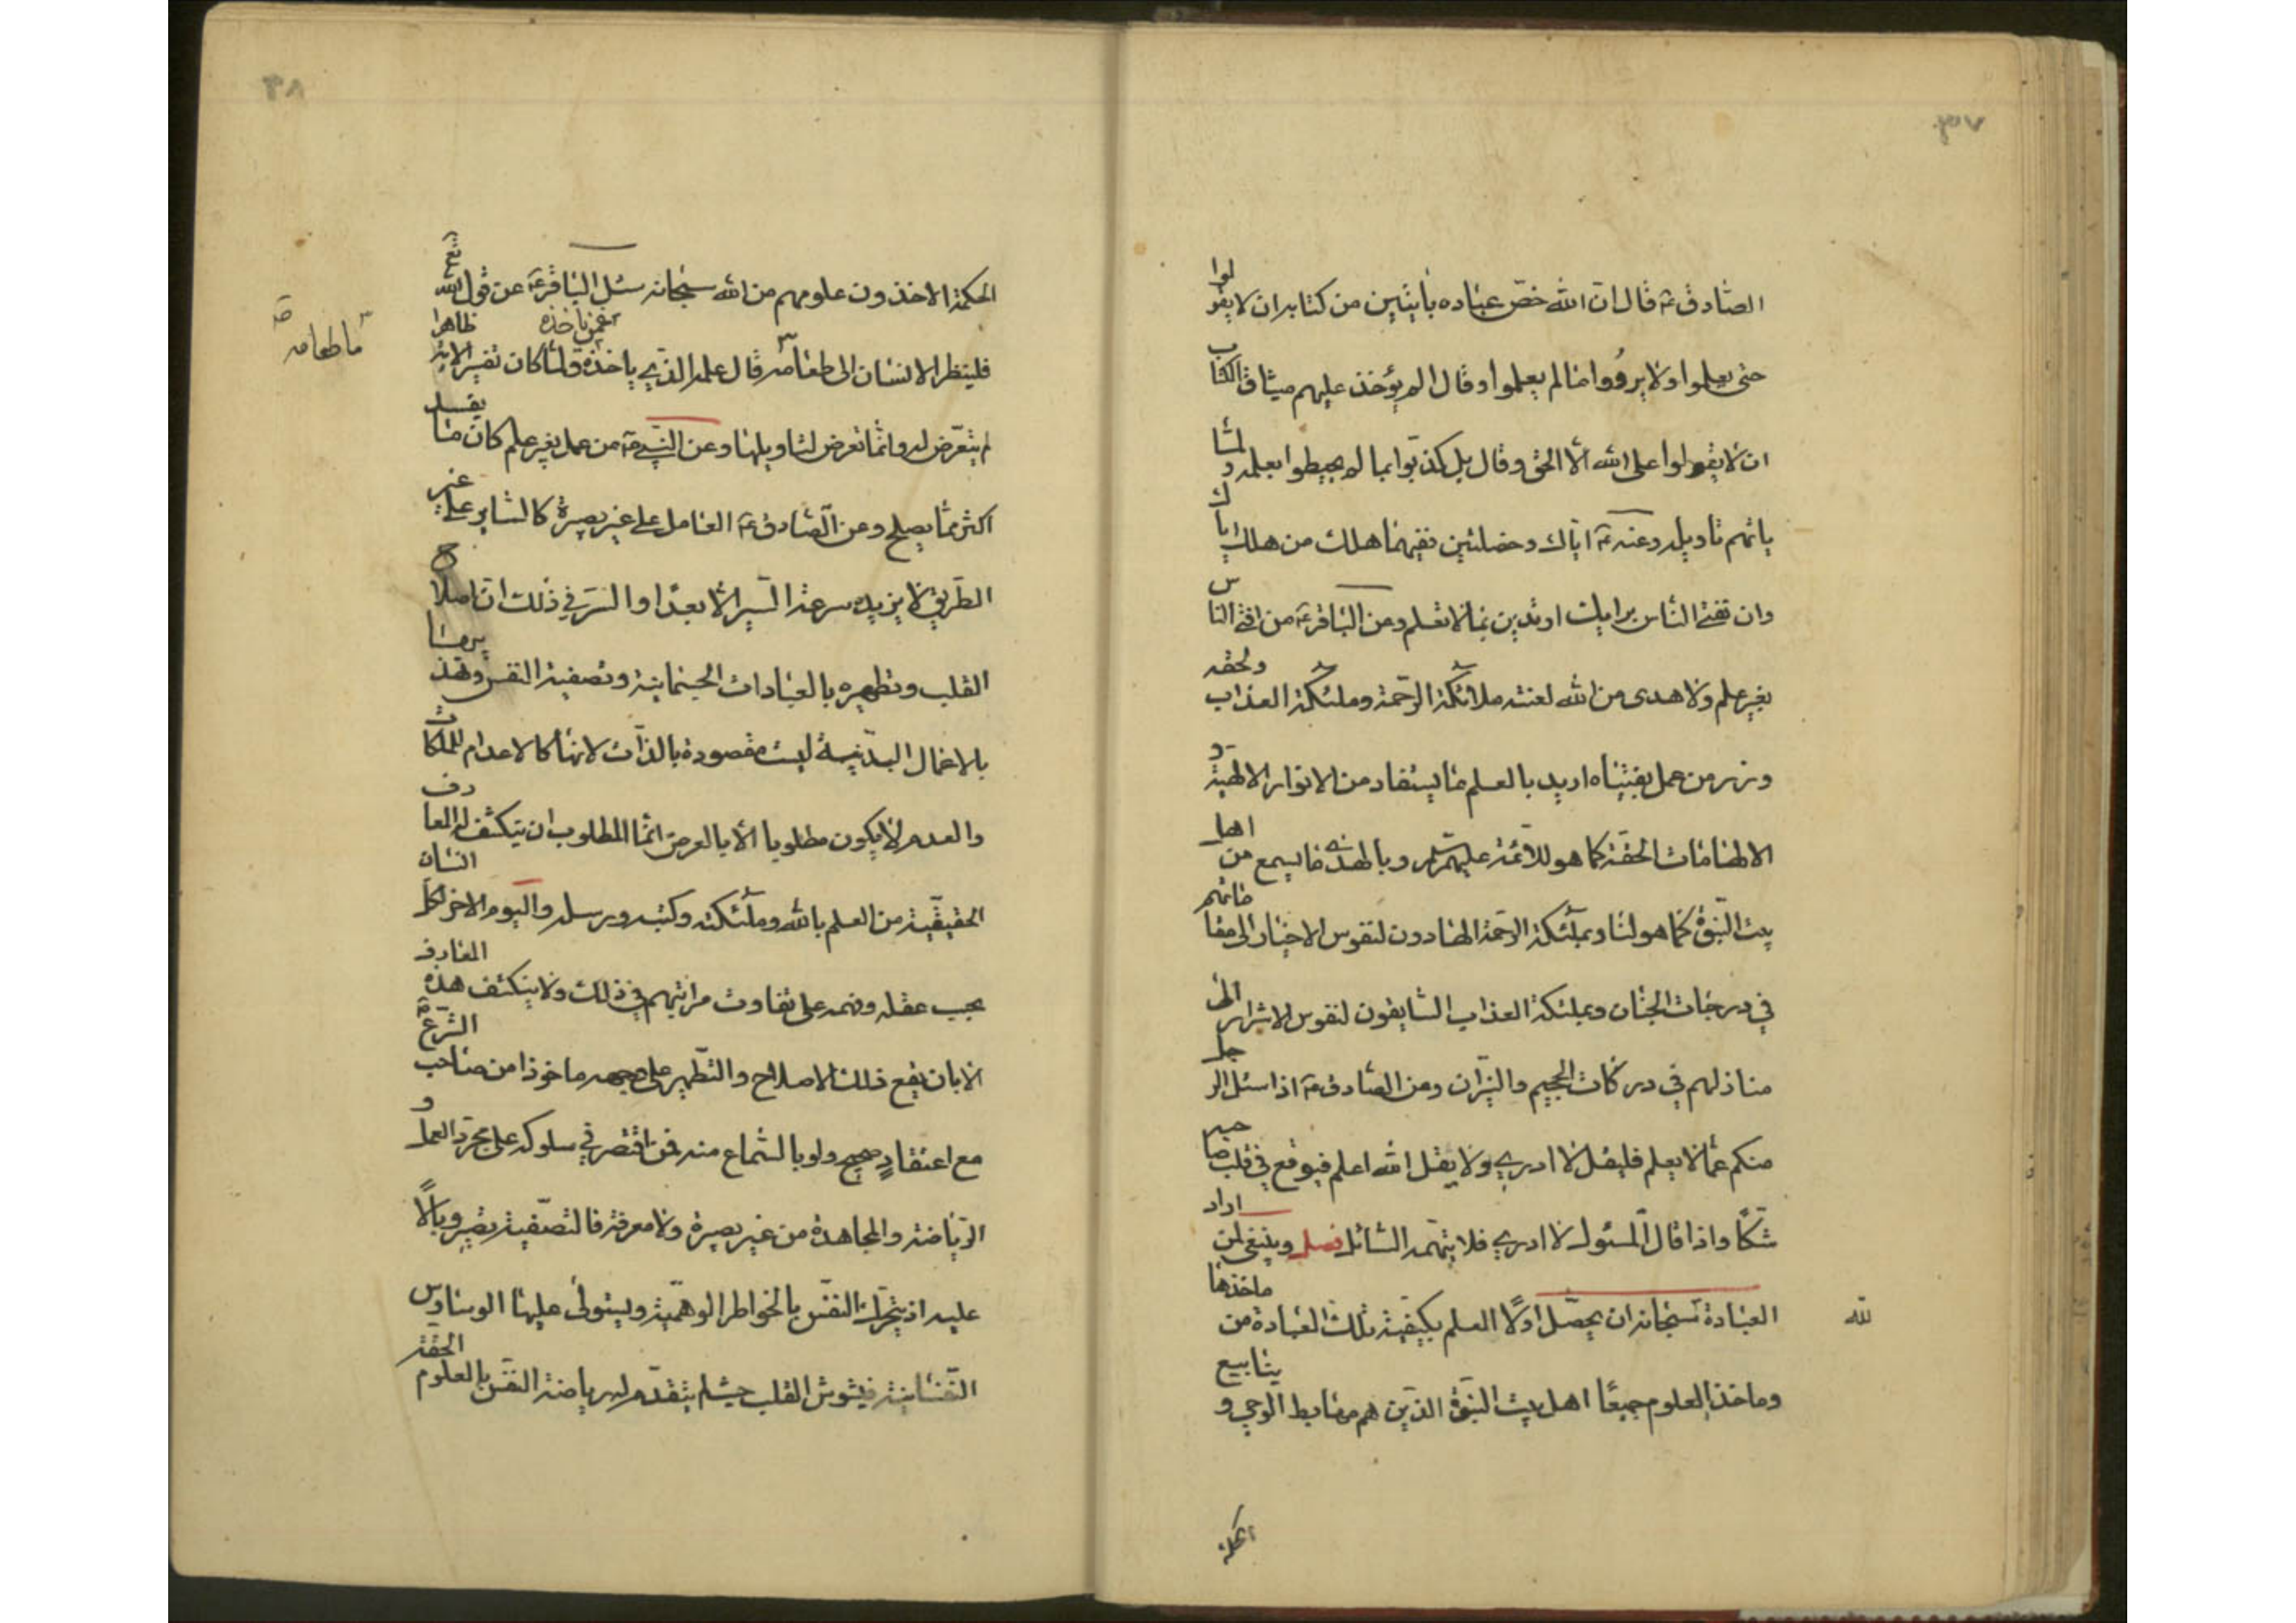 ٣٧
الصادق ع قال ان الله خصّ عباده بآيتين من كتابه ان لا يقولوا
حتى يعلموا ولا يردّوا ما لم يعلموا وقال الم يؤخذ عليهم ميثاق الكتاب
ان لا يقولوا على الله الّا الحق وقال بل كذّبوا بما لم يحيطوا بعلمه ولمّا
ياتهم تاويله وعنه ع ايّاك وخصلتين ففيهما هلك من هلك اياك
وان تفتى الناس برايك او تدين بما لا تعلم وعن الباقر ع من افتى الناس
بغير علم ولا هدى من الله لعنته ملائكة الرحمة وملئكة العذاب ولحقه
وزر من عمل بفتياه اريد بالعلم ما يستفاد من الانوار الالهية و
الالهامات الحقة كما هو للائمة عليهم وبالهدى ما يسمع من اهل
بيت النبوة كما هو لنا وبملئكة الرحمة الهادون لنفوس الاخيار الى مقاماتهم
في درجات الجنان وبملئكة العذاب السايقون لنفوس الاشرار الى
منازلهم في دركات الجحيم والنيران وعن الصادق ع اذا سئل الرجل
منكم عمّا لا يعلم فليقل لا ادري ولا يقل الله اعلم فيوقع في قلب صاحبه
شكّا واذا قال المسئول لا ادري فلا يتهمه السائل فصل وينبغي لمن اراد
العبادة لله سبحانه ان يحصّل اولًا العلم بكيفية تلك العبادة من ماخذها
وماخذ العلوم جميعًا اهل بيت النبوة الذين هم مهابط الوحي و ينابيع
الحكمة
٣٨
الحكمة الاخذون علومهم من الله سبحانه سئل الباقر ع عن قول الله تع
فلينظر الانسان الى طعامه ما طعامه قال علمه الذي ياخذه عمن ياخذه ولمّا كان تفسير الاية ظاهرا
لم يتعرّض له وانما تعرض لتاويلها وعن النبي ص من عمل بغير علم كان ما يفسد
اكثر ممّا يصلح وعن الصّادق ع العامل على غير بصيرة كالساير على غير
الطريق لا يزيده سرعة السير الا بعدًا والسرّ في ذلك ان اصلاح
القلب وتطهيره بالعبادات الجسمانية وتصفية النفس وتهذيبها
بالاعمال البدنية ليست مقصودة بالذات لانها كالاعدام للملكات
والعدم لا يكون مطلوبا الّا بالعرض انما المطلوب ان تنكشف له المعارف
الحقيقية من العلم بالله وملائكته وكتبه ورسله واليوم الاخر لكل انسان
بحسب عقله وفهمه على تفاوت مراتبهم في ذلك ولا ينكشف هذه المعارف
الا بان يقع ذلك الاصلاح والتطهير على وجهه ماخوذا من صاحب الشرع ع
مع اعتقادٍ صحيح ولو بالسّماع منه فمن اقتصر في سلوكه على مجرّد العمل و
الرياضة والمجاهدة من غير بصيرة ولا معرفة فالتصفية يصير وبالًا
عليه اذ يتحرّك النفس بالخواطر الوهميّة ويستولى عليها الوساوس
النفسانية فيشوش القلب حيث لم يتقدّم له رياضة النفس بالعلوم الحقة